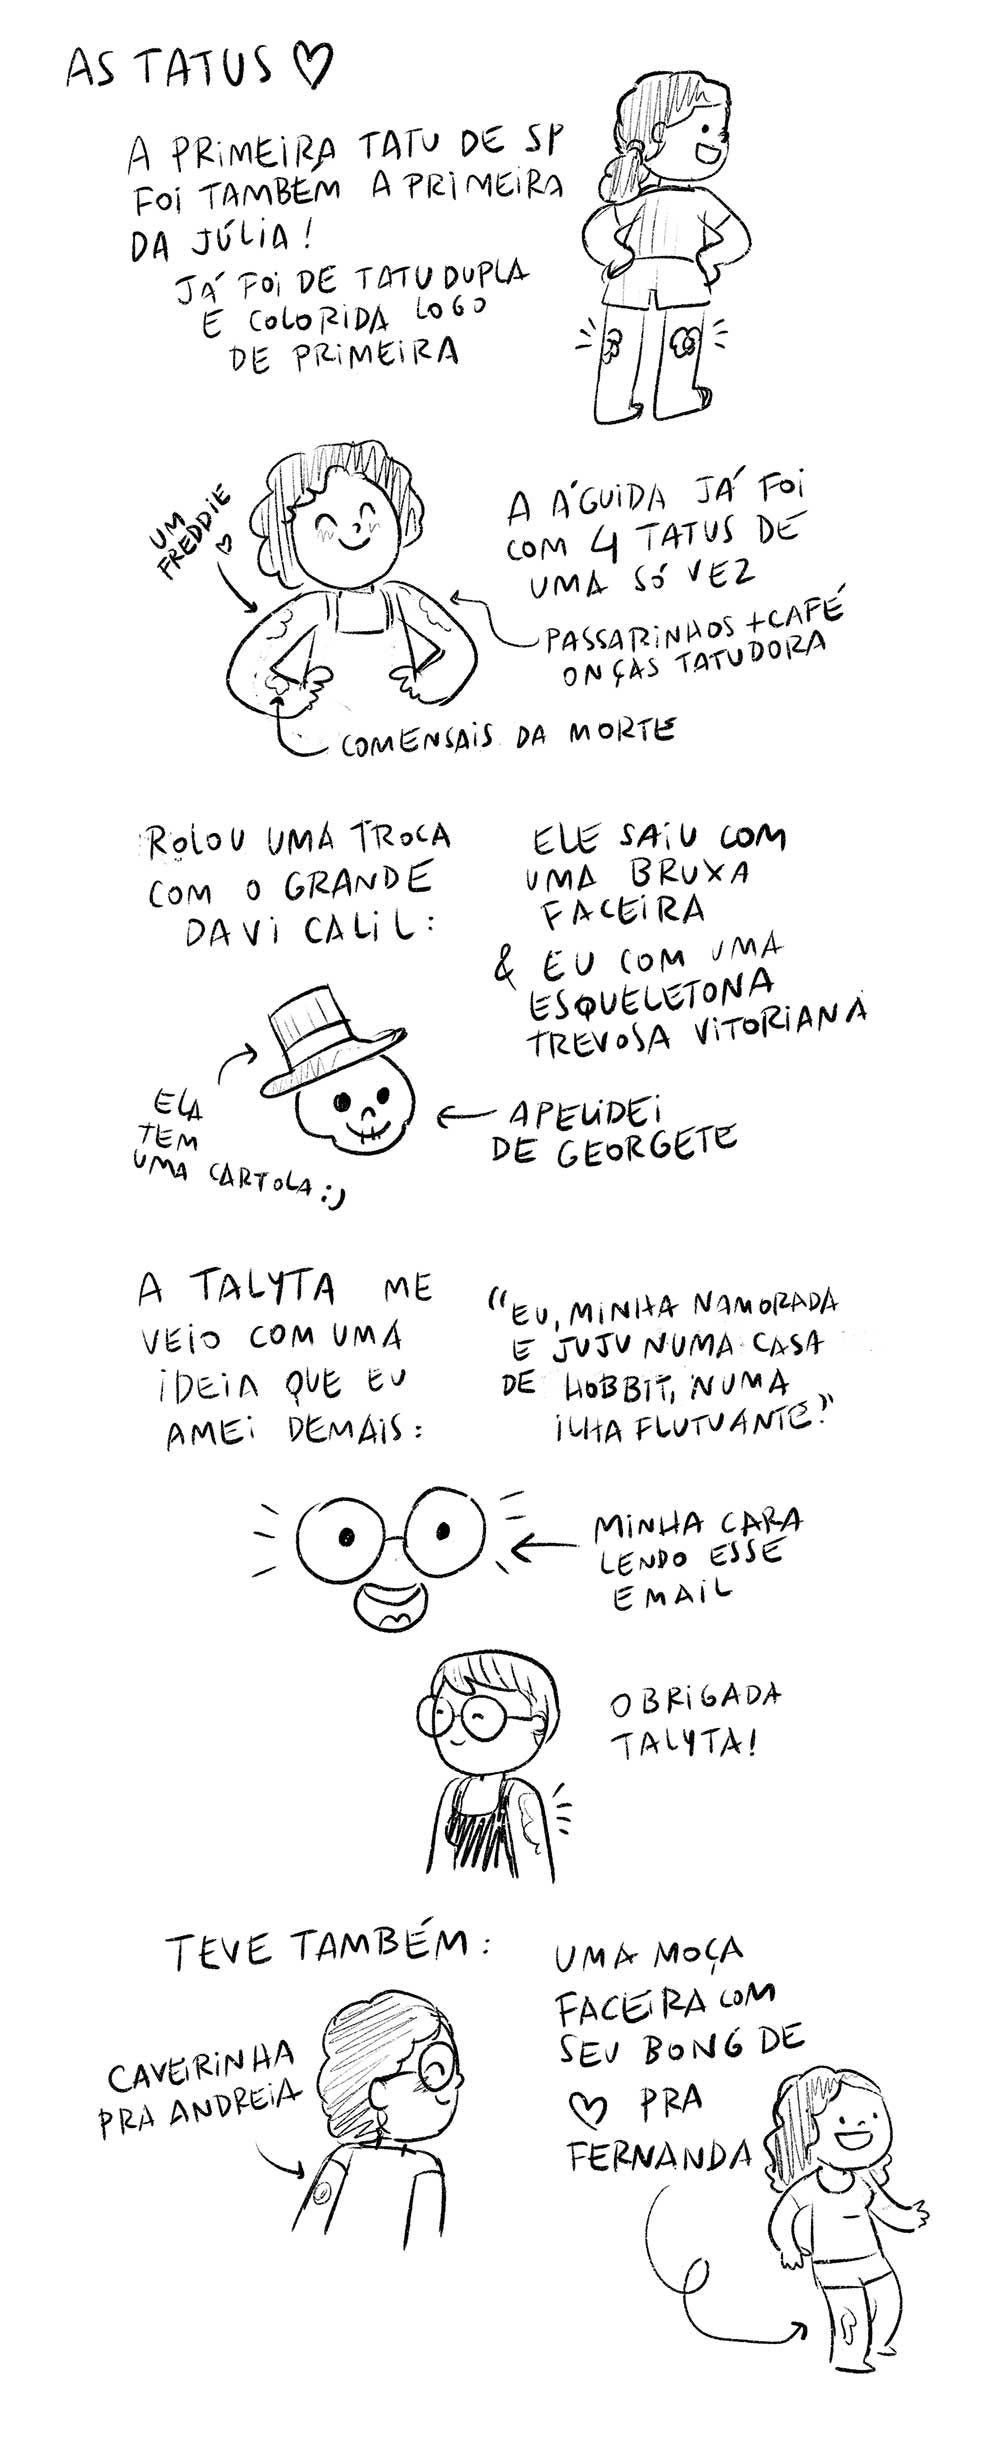 AS TATUS ♡
A PRIMEIRA TATU DE SP
FOI TAMBÉM A PRIMEIRA
DA JÚLIA!
JÁ FOI DE TATU DUPLA
E COLORIDA LOGO
DE PRIMEIRA
UM
FREDDIE
♡
A ÁGUIDA JÁ FOI
COM 4 TATUS DE
UMA SÓ VEZ
PASSARINHOS + CAFÉ
ONÇAS TATUDORA
COMENSAIS DA MORTE
ROLOU UMA TROCA
COM O GRANDE
DAVI CALIL:
ELE SAIU COM
UMA BRUXA
FACEIRA
& EU COM UMA
ESQUELETONA
TREVOSA VITORIANA
ELA
TEM
UMA CARTOLA :)
APELIDEI
DE GEORGETE
A TALYTA ME
VEIO COM UMA
IDEIA QUE EU
AMEI DEMAIS:
"EU, MINHA NAMORADA
E JUJU NUMA CASA
DE HOBBIT, NUMA
ILHA FLUTUANTE."
MINHA CARA
LENDO ESSE
EMAIL
OBRIGADA
TALYTA!
TEVE TAMBÉM:
CAVEIRINHA
PRA ANDREIA
UMA MOÇA
FACEIRA COM
SEU BONG DE
♡ PRA
FERNANDA